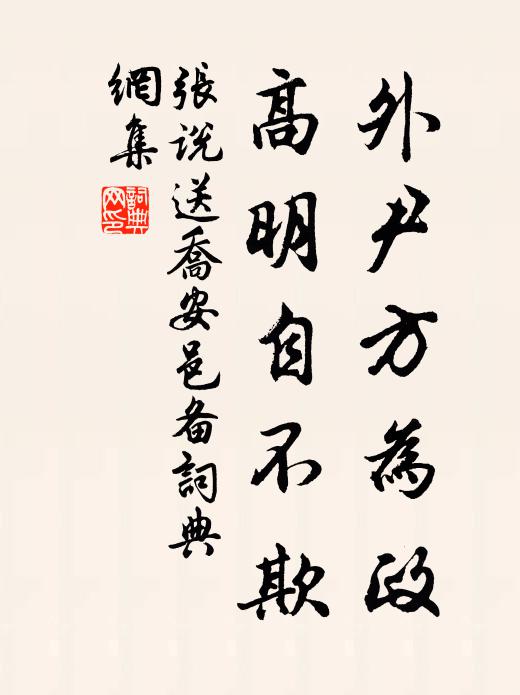 外尹方為政
高明自不欺
張說送喬安邑备詞典
網集
詞典
网印